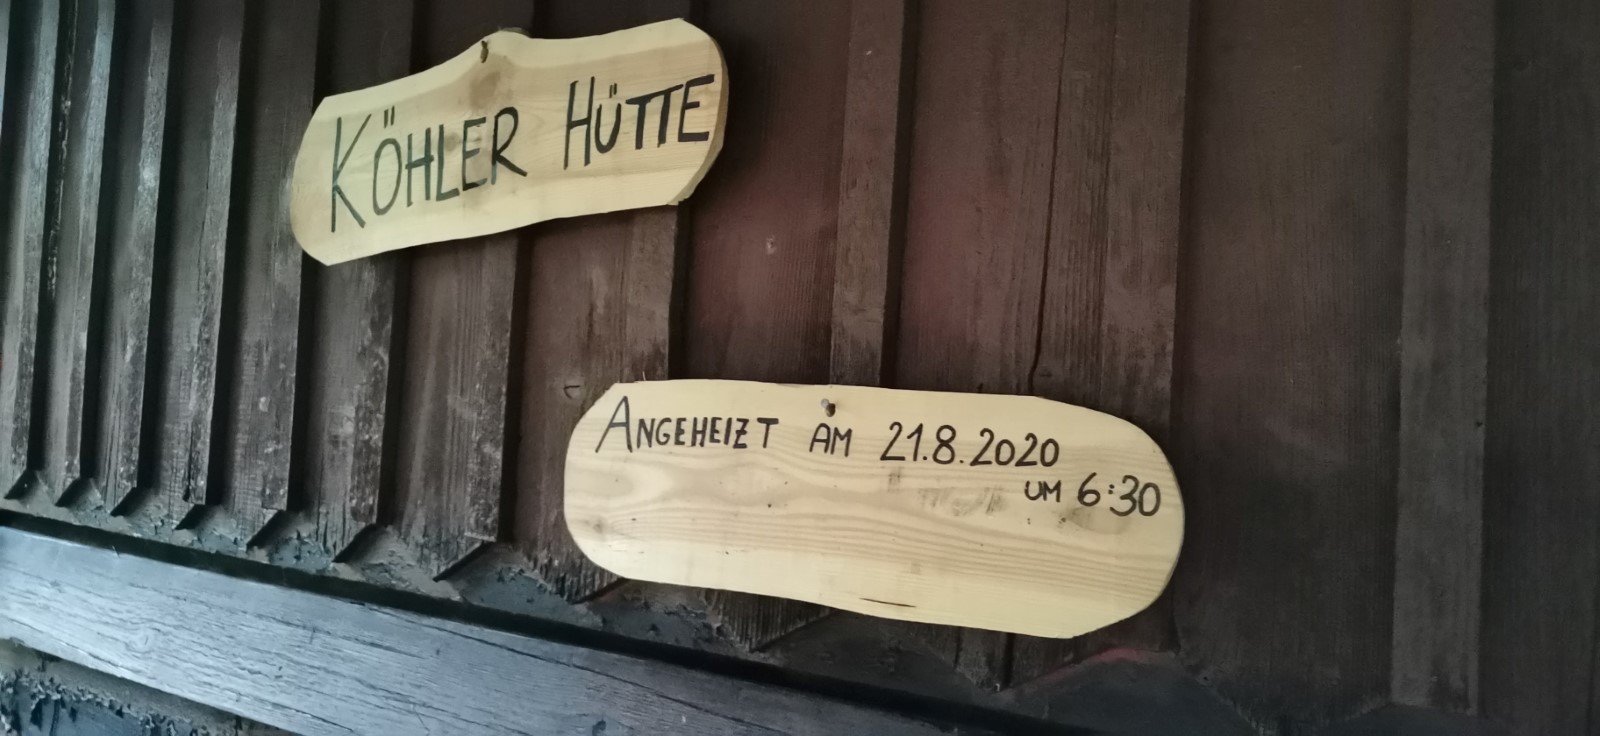 KÖHLER HÜTTE
ANGEHEIZT AM 21.8.2020
UM 6:30